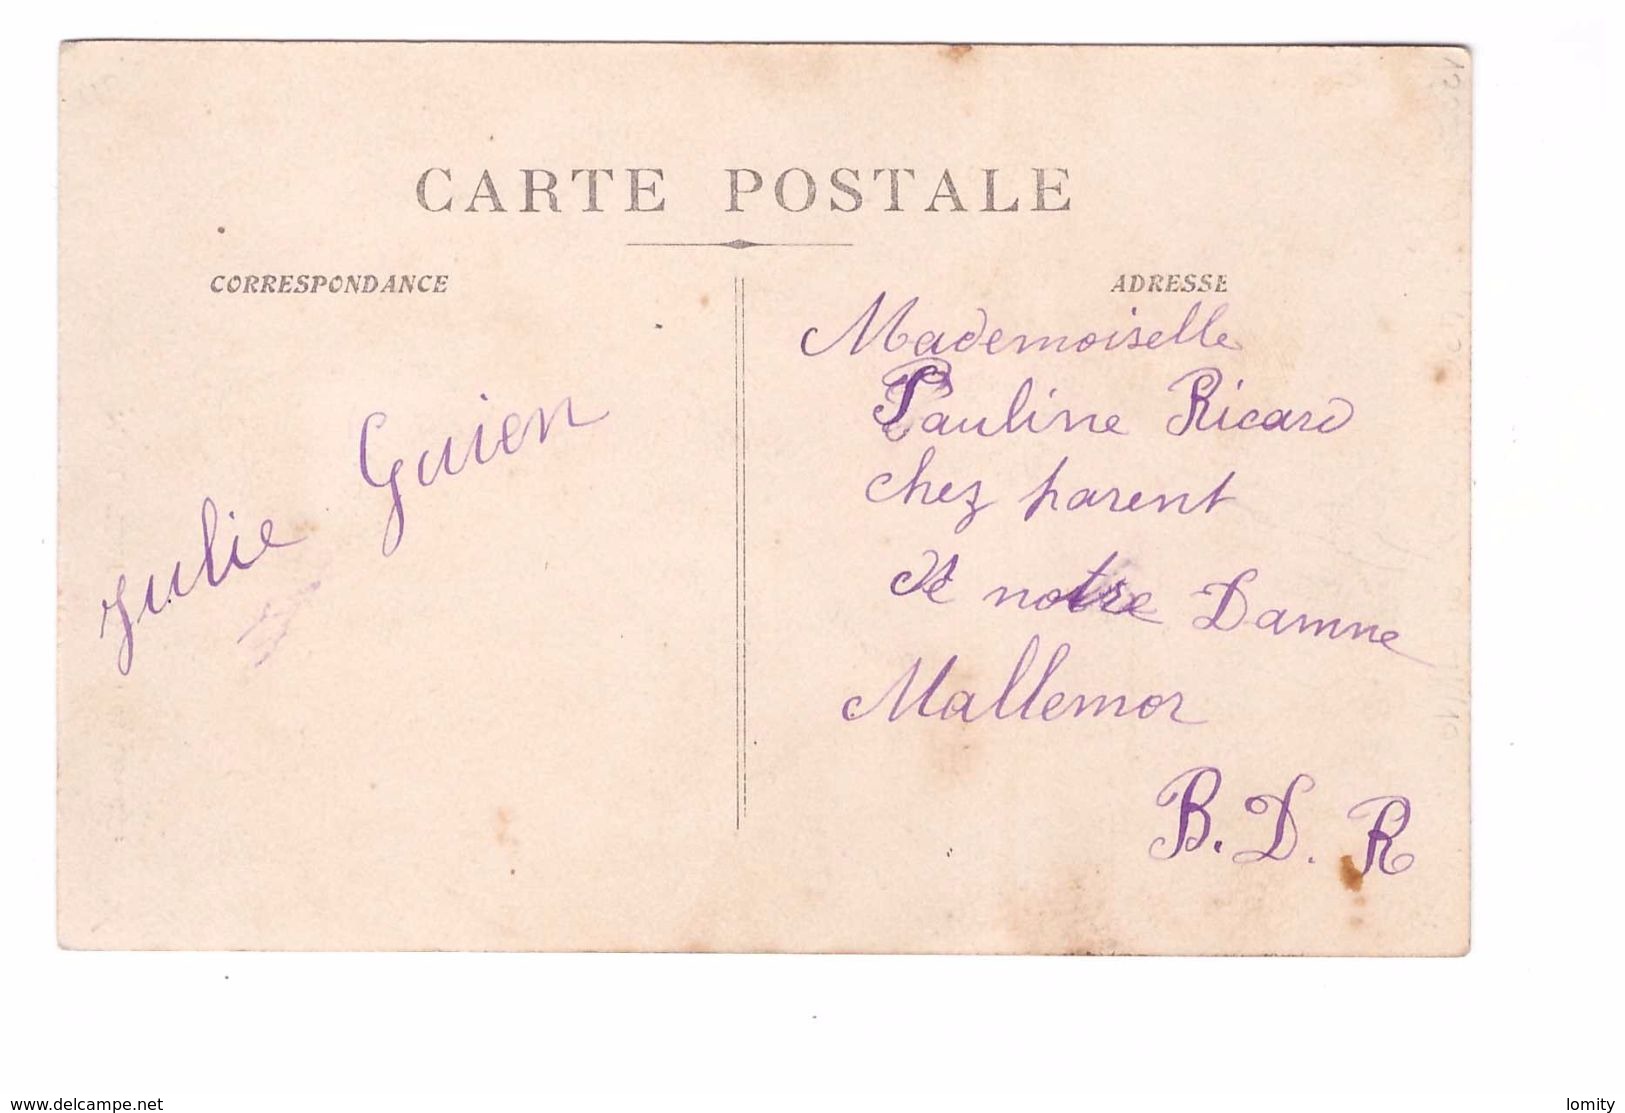 CARTE POSTALE
CORRESPONDANCE
ADRESSE
Julie Guien
Mademoiselle
Pauline Ricard
chez parent
St notre Damne
Mallemor
B. D. R
www.delcampe.net
lomity